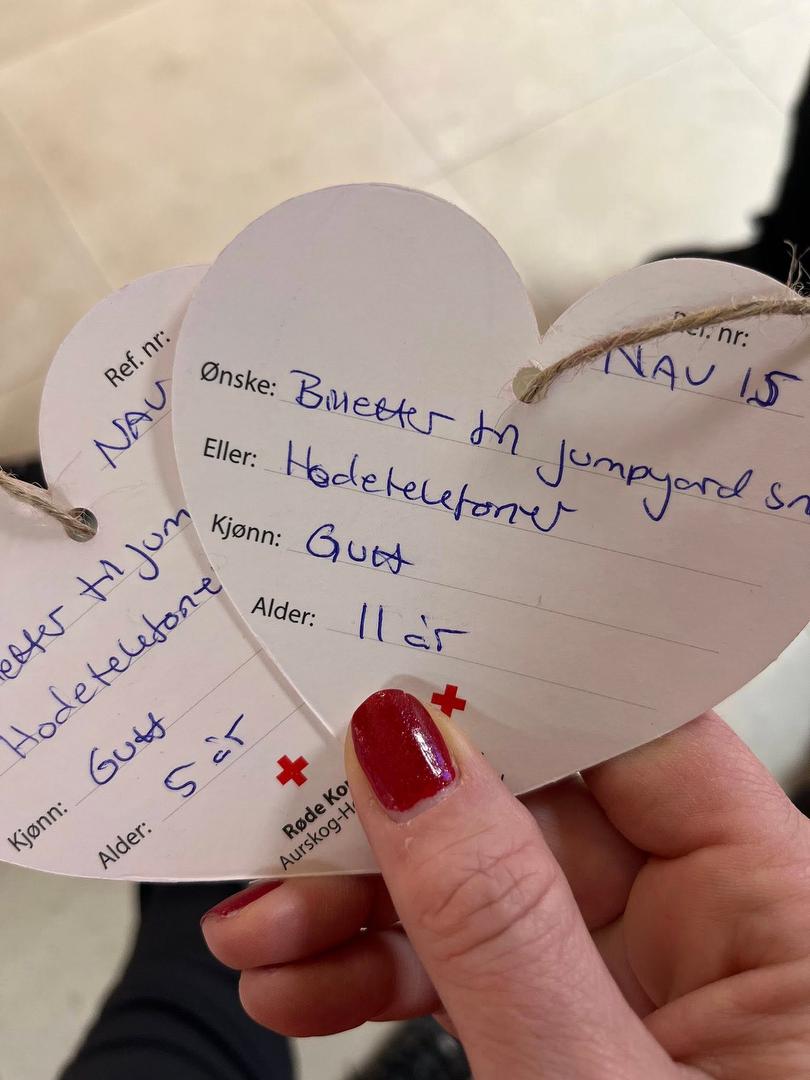 Ref. nr:
NAV 15
Ønske: Billetter til Jumpyard
Eller: Hodetelefoner
Kjønn: Gutt
Alder: 11 år
Ref. nr:
NAV
etter til Jum
Hodetelefone
Kjønn: Gutt
Alder: 5 år
Røde Ko
Aurskog-H